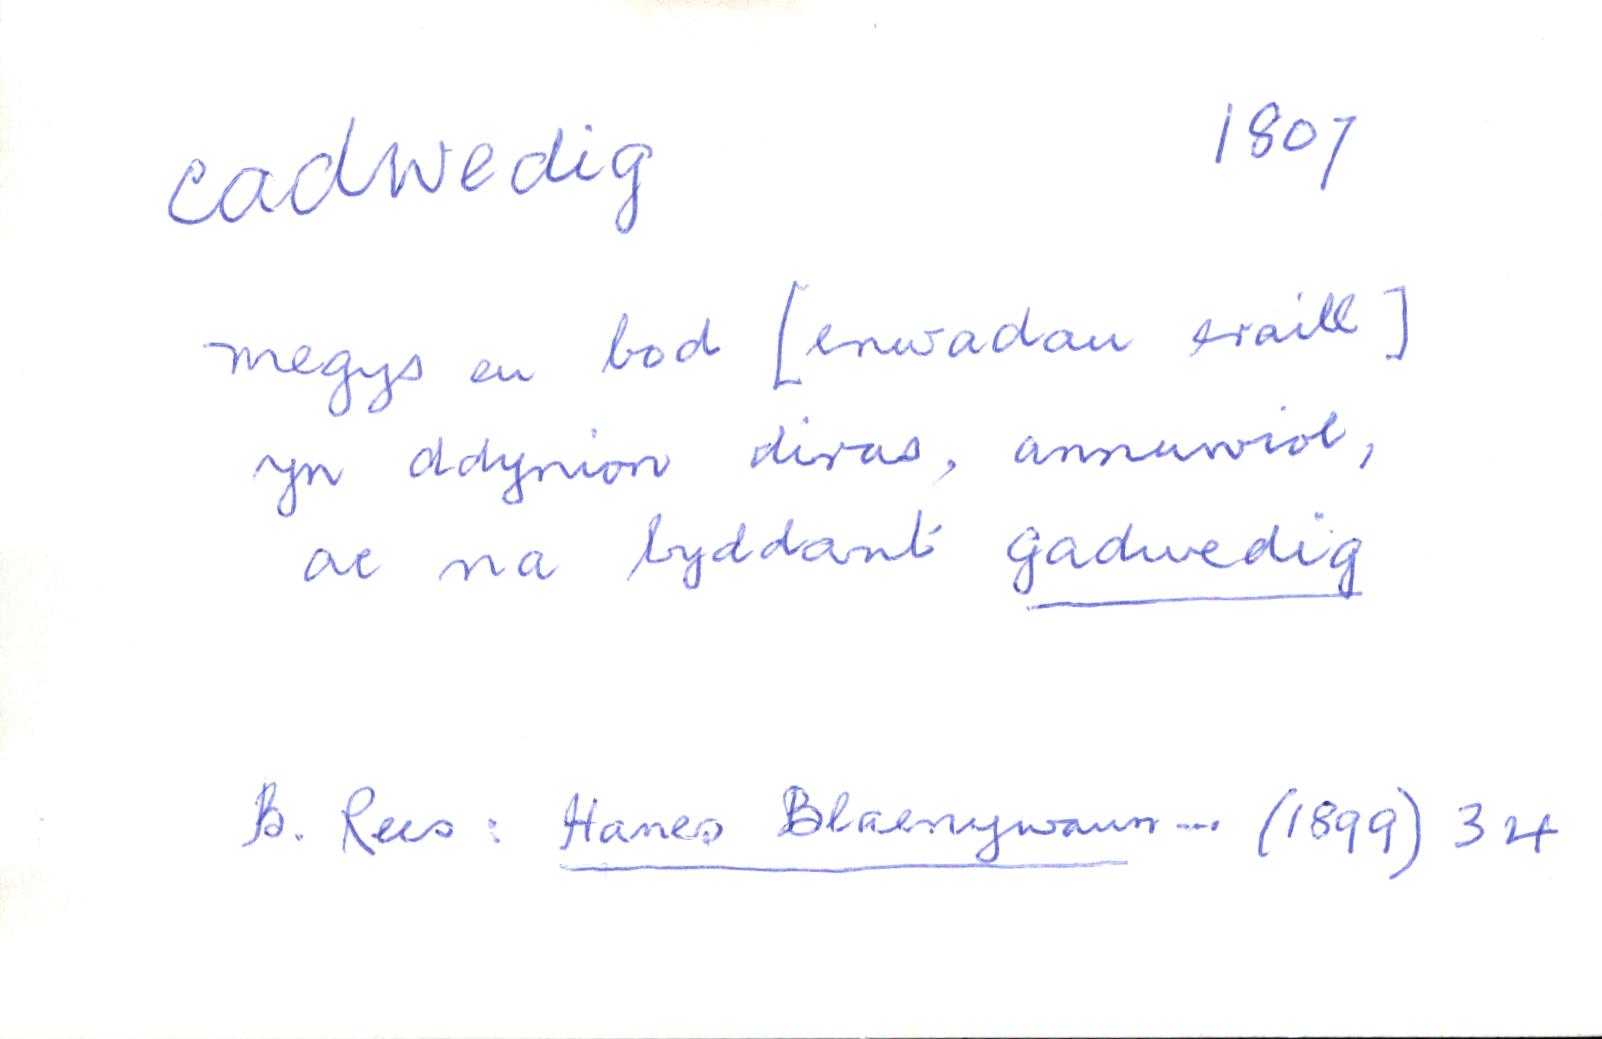 cadwedig 1807
megys eu bod [enwadau eraill]
yn ddynion diras, annuwiol,
ac na byddant gadwedig
B. Rees: Hanes Blaenywaun ... (1899) 34